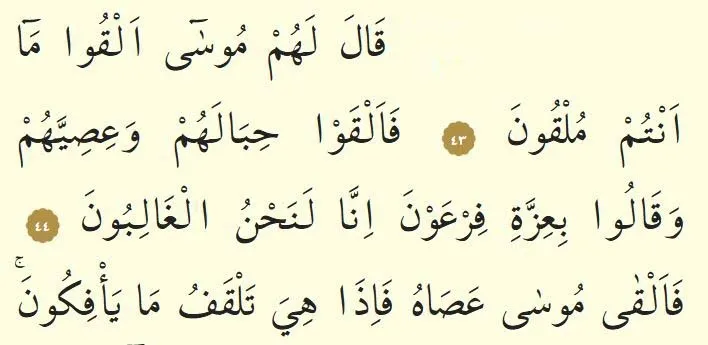 قَالَ لَهُمْ مُوسٰٓى اَلْقُوا مَٓا
اَنْتُمْ مُلْقُونَ ٤٣ فَاَلْقَوْا حِبَالَهُمْ وَعِصِيَّهُمْ
وَقَالُوا بِعِزَّةِ فِرْعَوْنَ اِنَّا لَنَحْنُ الْغَالِبُونَ ٤٤
فَاَلْقٰى مُوسٰى عَصَاهُ فَاِذَا هِيَ تَلْقَفُ مَا يَأْفِكُونَۚ